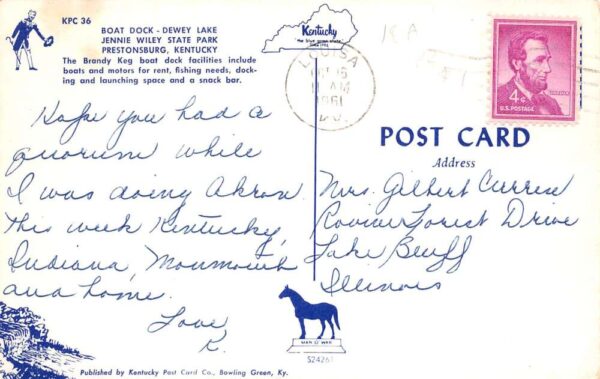 KPC 36
BOAT DOCK - DEWEY LAKE
JENNIE WILEY STATE PARK
PRESTONSBURG, KENTUCKY
The Brandy Keg boat dock facilities include
boats and motors for rent, fishing needs, dock-
ing and launching space and a snack bar.
Kentucky
the blue grass state
LOUISA
OCT 16
11 AM
1961
KY.
4¢
U.S. POSTAGE
Hope you had a
quorum while
I was doing Akron.
This week Kentucky,
Indiana, Monmouth
and home.
Love
K.
POST CARD
Address
Mrs. Gilbert Curren
Forest Drive
Lake Bluff
Illinois
MAN O WAR
Published by Kentucky Post Card Co., Bowling Green, Ky.